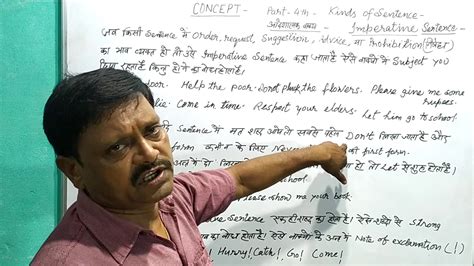 CONCEPT - Part - 4th - Kinds of Sentence -
आज्ञासूचक वाक्य - Imperative Sentence -
जब किसी Sentence में Order, request, Suggestion, advice, या Prohibition (निषेध)
का भाव व्यक्त हो तो उसे Imperative Sentence कहा जाता है ऐसे वाक्यों में Subject you
छिपा रहता है किन्तु होने का बोध होता है।
door. Help the poor. Don't pluck the flowers. Please give me some
rupees.
lie. Come in time. Respect your elders. Let him go to school
Sentence में मत शब्द Don't लिखा जाता है और
form के लिए first form.
हो तो Let से शुरू होता है।
school.
Please show me your book.
Sentence एक ही शब्द का होता है। ऐसे शब्दों से strong
का बोध होता है। ऐसे वाक्यों के अन्त में Note of exclamation (!)
! Hurry! Catch! Go! Come!